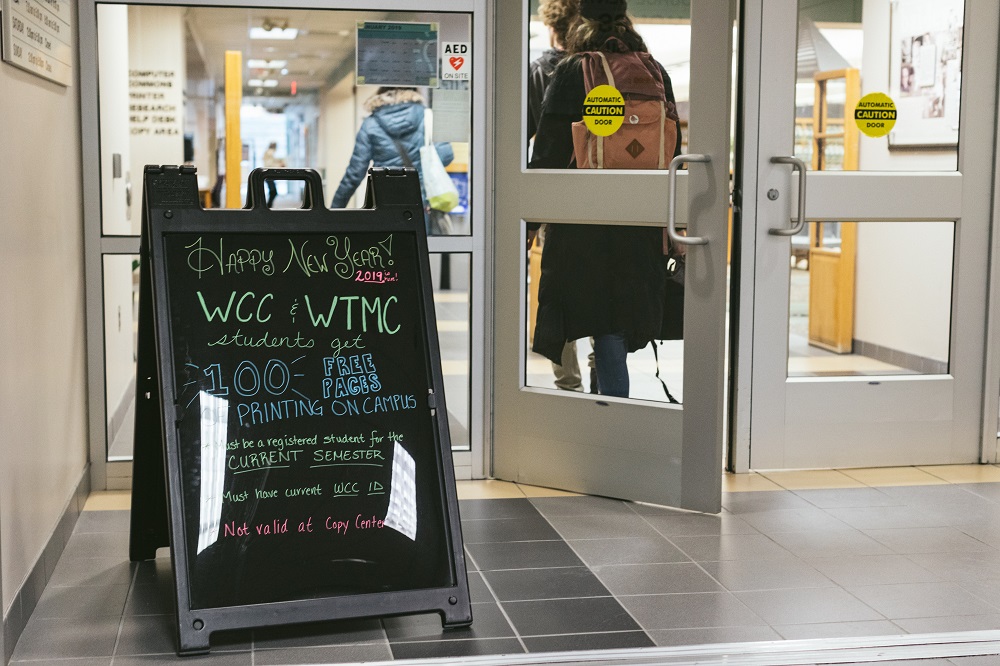 COMPUTER
COMMONS
PRINTER
RESEARCH
HELP DESK
COPY AREA
JANUARY 2019
AED
ON SITE
AUTOMATIC
CAUTION
DOOR
AUTOMATIC
CAUTION
DOOR
Happy New Year!
2019
WCC & WTMC
students get
100 FREE
PAGES
PRINTING ON CAMPUS
Must be a registered student for the
CURRENT SEMESTER
Must have current WCC ID
Not valid at Copy Center